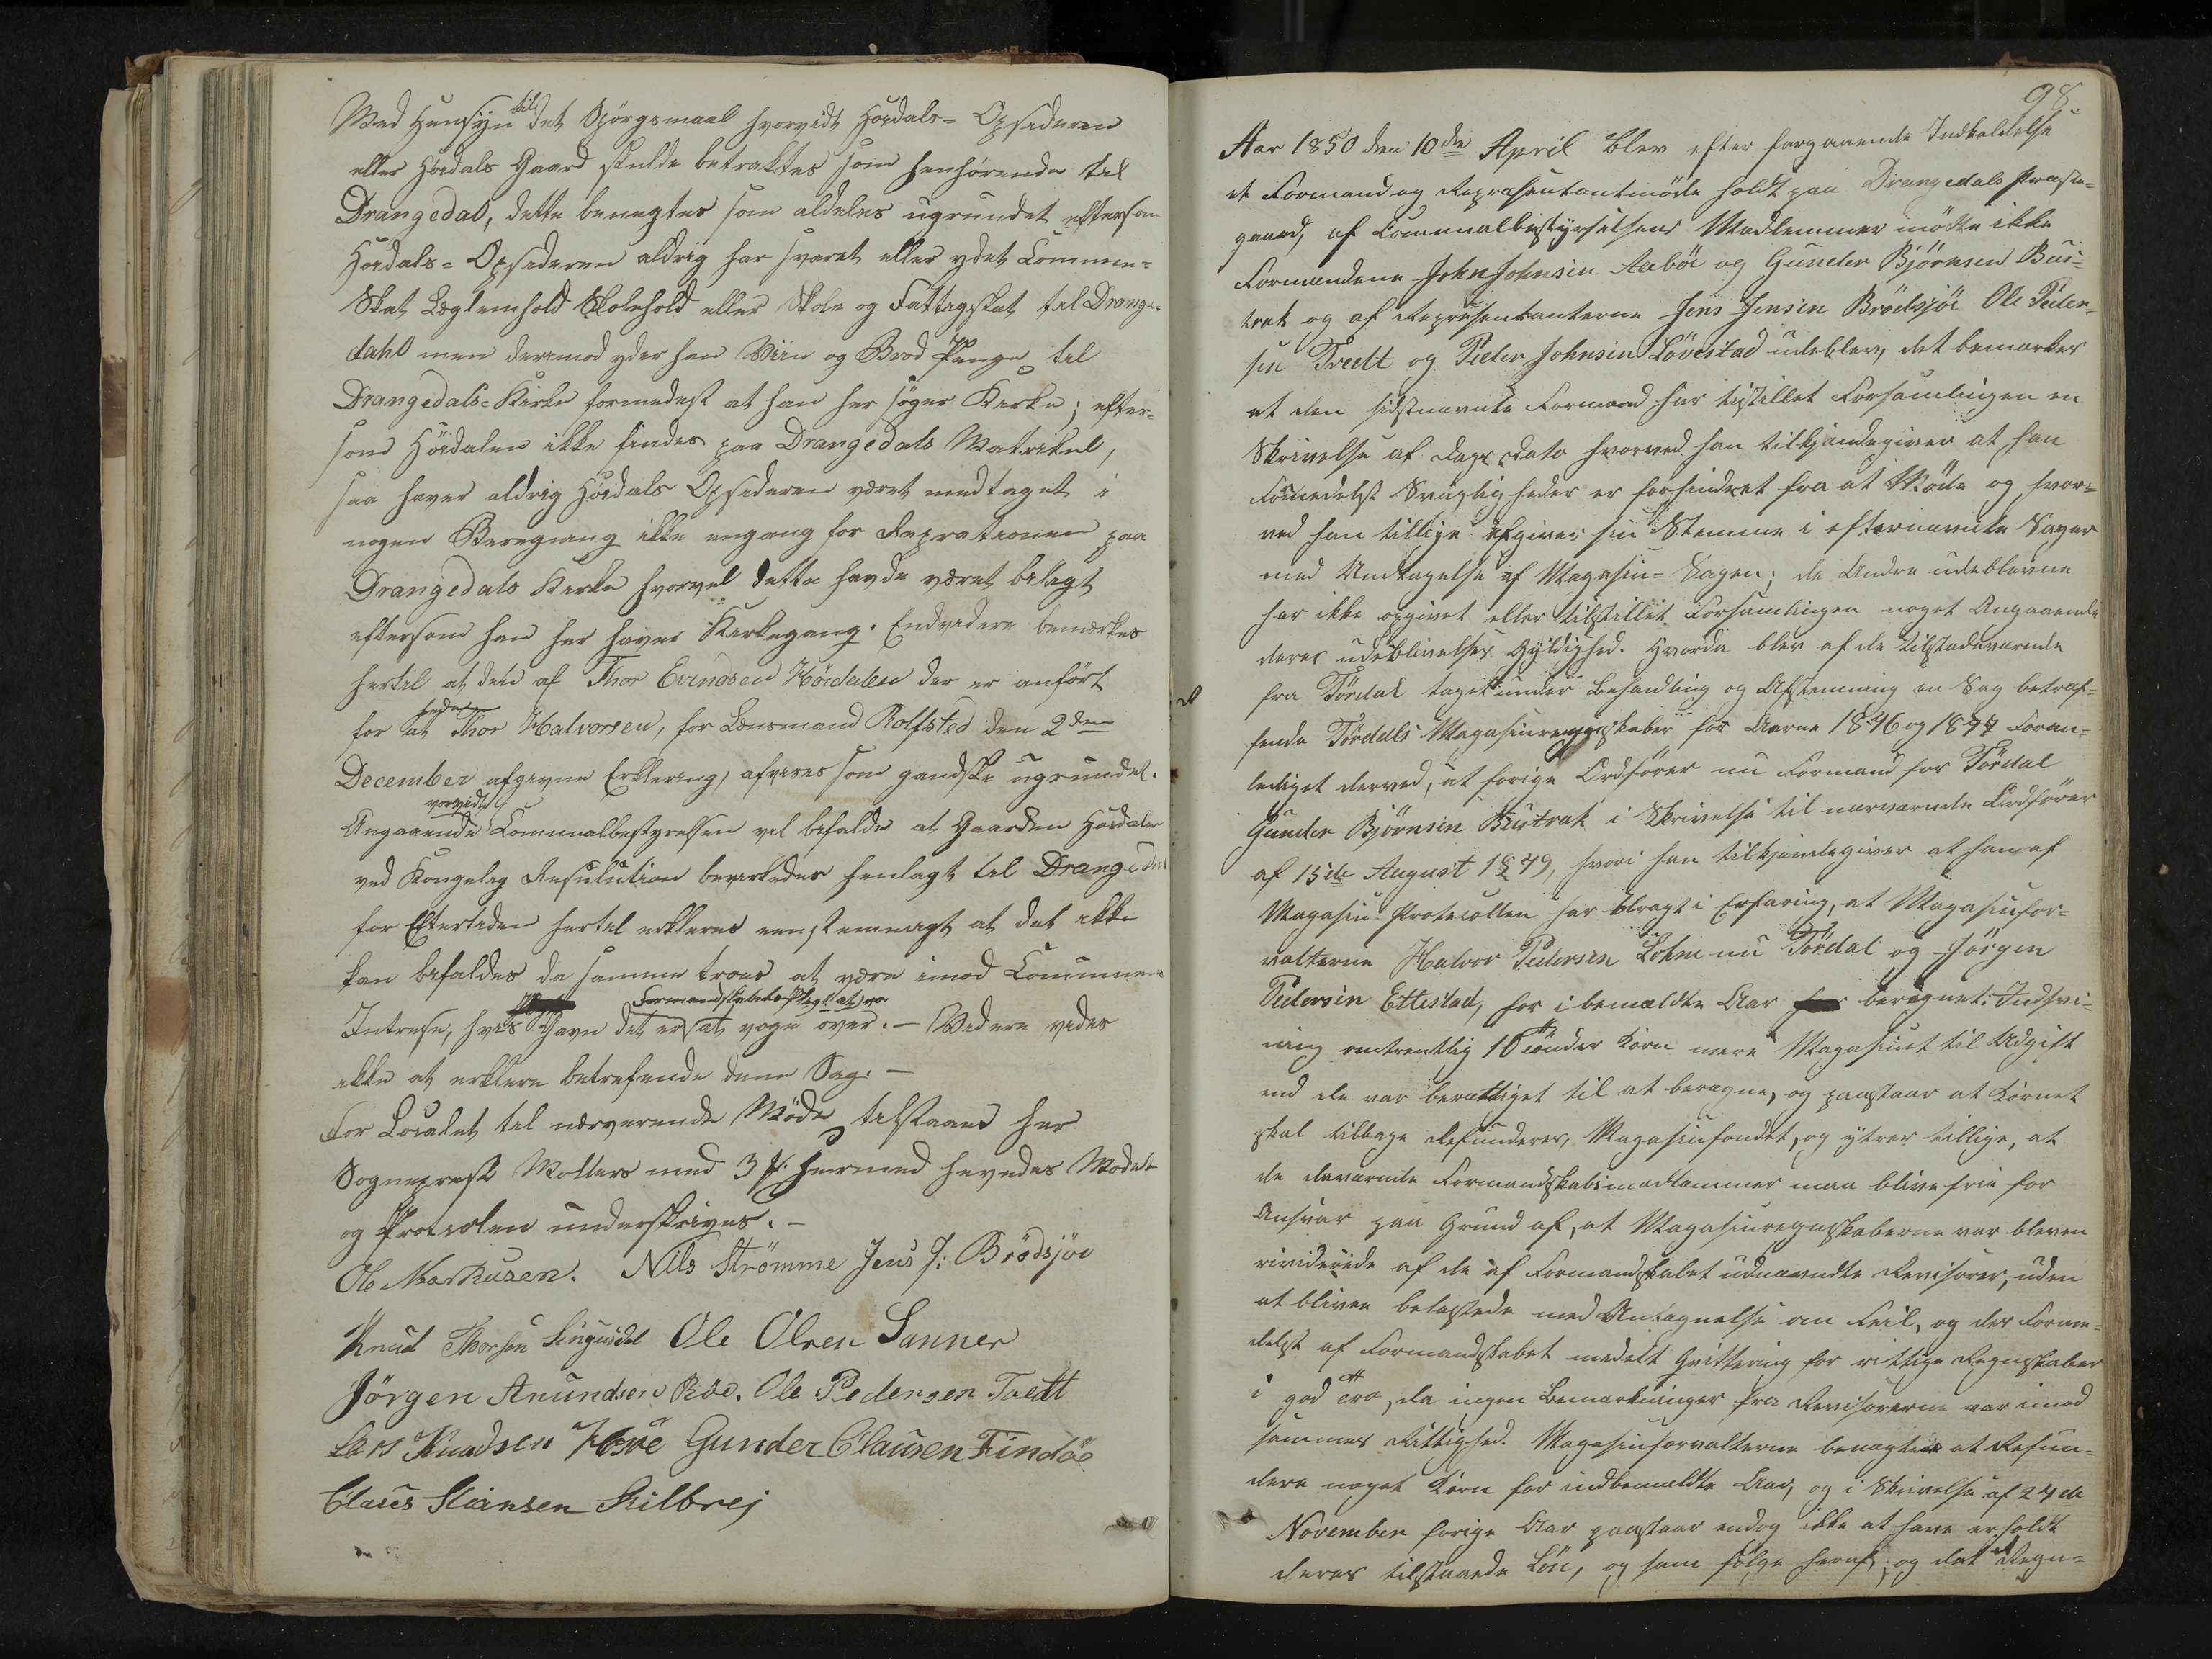 Med Hensyn til det Spörgsmaal hvorvidt Höidals-Opsideren
eller Höidals Gaard skulde betraktes som henhörende til
Drangedal, dette benegtes som aldeles ugrundet eftersom
Höidals-Opsideren aldrig har svaret eller ydet Commune-
Skat Læglemhold Skolehold eller Skole og Fattigskat til Drange-
dahl men derimod yder han Viin og Brød Penge til
Drangedals-Kirke formedest at han her söger Kirke; efter-
som Höidalen ikke findes paa Drangedals Matrikel,
saa haver aldrig Höidals Opsideren været medtaget i
nogen Beregning ikke engang for Reprationen paa
Drangedals Kirke hvorvel dette havde været belagt
eftersom han her haver Kirkegang. Endvidere bemerkes
hertil at den af Thor Evindsen Höidalen der er anfört
for at Thor Halvorsen, for Lensmand Rolfsted den 2den
December afgivne Erklering, afvises som gandske ugrundet.
Angaaende vorvidt Communalbestyrelsen vil befalde at Gaarden Höidalen
ved Kongelig Resulution bevirkedes henlagt til Drangedal
for Eftertiden hertil erkleres eenstemmigt at det ikke
kan befaldes da samme troes at være imod Communens
Intrese, hvis Gavn det er Formandskabets Pligt at vaage over. – Videre vides
ikke at erklere betrefende denne Sag. –
For Localet til nærverende Möde tilstaaes her
Sogneprest Mollers med 3 ß. Hermed hevedes Mödet
og Protocolen underskrives. –
Ole Markusen. Nils Strömme Jens J: Brödsjöe
Knud Thorsen Lingusdal Ole Olsen Sanner
Jörgen Anundsen Röe. Ole Pedersen Tvedt
Lars Knudsen Hove Gunder Clausen Findöe
Claus Hansen Kilbrej
98.
Aar 1850 den 10de April blev efter forgaaende Indkaldelse
et Formand og Repræsentantmöde holdt paa Drangedals Præste-
gaard, af Communalbestyrelsens Medlemmer mödte ikke
Formændene John Johnsen Aaböe og Gunder Björnsen Bus-
trak og af Repræsentanterne Jens Jensen Brödsjöe Ole Peder-
sen Tvedt og Peder Johnsen Lövestad udeblev, det bemærkes
at den sidstnævnte Formand har tilstillet Forsamlingen en
Skrivelse af Dags Dato hvorved han tilkjendegiver at han
Formedelst Svagligheder er forhindret fra at Möde og hvor-
ved han tillige afgiver sin Stemme i efternævnte Sager
med Undtagelse af Magasin-Sagen; de Andre udeblevne
har ikke opgivet eller tilstillet Forsamlingen noget Angaaende
deres udeblivelses Gyldighed. Hvorda blev af de tilstedeværende
fra Tördal taget under Behandling og Afstemning en Sag betref-
fende Tördals Magasinregnskaber for Aarne 1846 og 1847 Foran-
lediget derved, at forige Ordförer nu Formand for Tördal
Gunder Björnsen Bustrak i Skrivelse til nærværende Ordförer
af 15de August 1849, hvori han tilkjendegiver at han af
Magasin Protocollen har bragt i Erfaring, at Magasinfor-
valterne Halvor Pedersen Lohne nu Tördal og Jörgen
Pedersen Ettestad, har i bemældte Aar beregnet Indsvi-
ning omtrentlig 10 Tönder Korn mere Magasinet til Udgift
end de var berettiget til at beregne, og paastaar at Kornet
skal tilbage Refunderes, Magasinfondet, og ytrer tillige, at
de daværende Formandskabsmedlemmer maa blive frie for
Ansvar paa Grund af, at Magasinregnskaberne var bleven
reviderede af de af Formandskabet udnævndte Revisorer, uden
at bliven belastede med Antagnelse om Feil, og der Forme-
delst af Formandskabet meddelt Qvittering for rigtige Regnskaber
i god Tro, da ingen Bemærkninger fra Revisorerne var imod
sammes Rigtighed. Magasinforvalterne benægter at Refun-
dere noget Korn for indbemældte Aar, og i Skrivelse af 24de
November forige Aar paastaar endog ikke at have erholdt
deres tilstaaede Lön, og som fölge heraf, og det Regn-